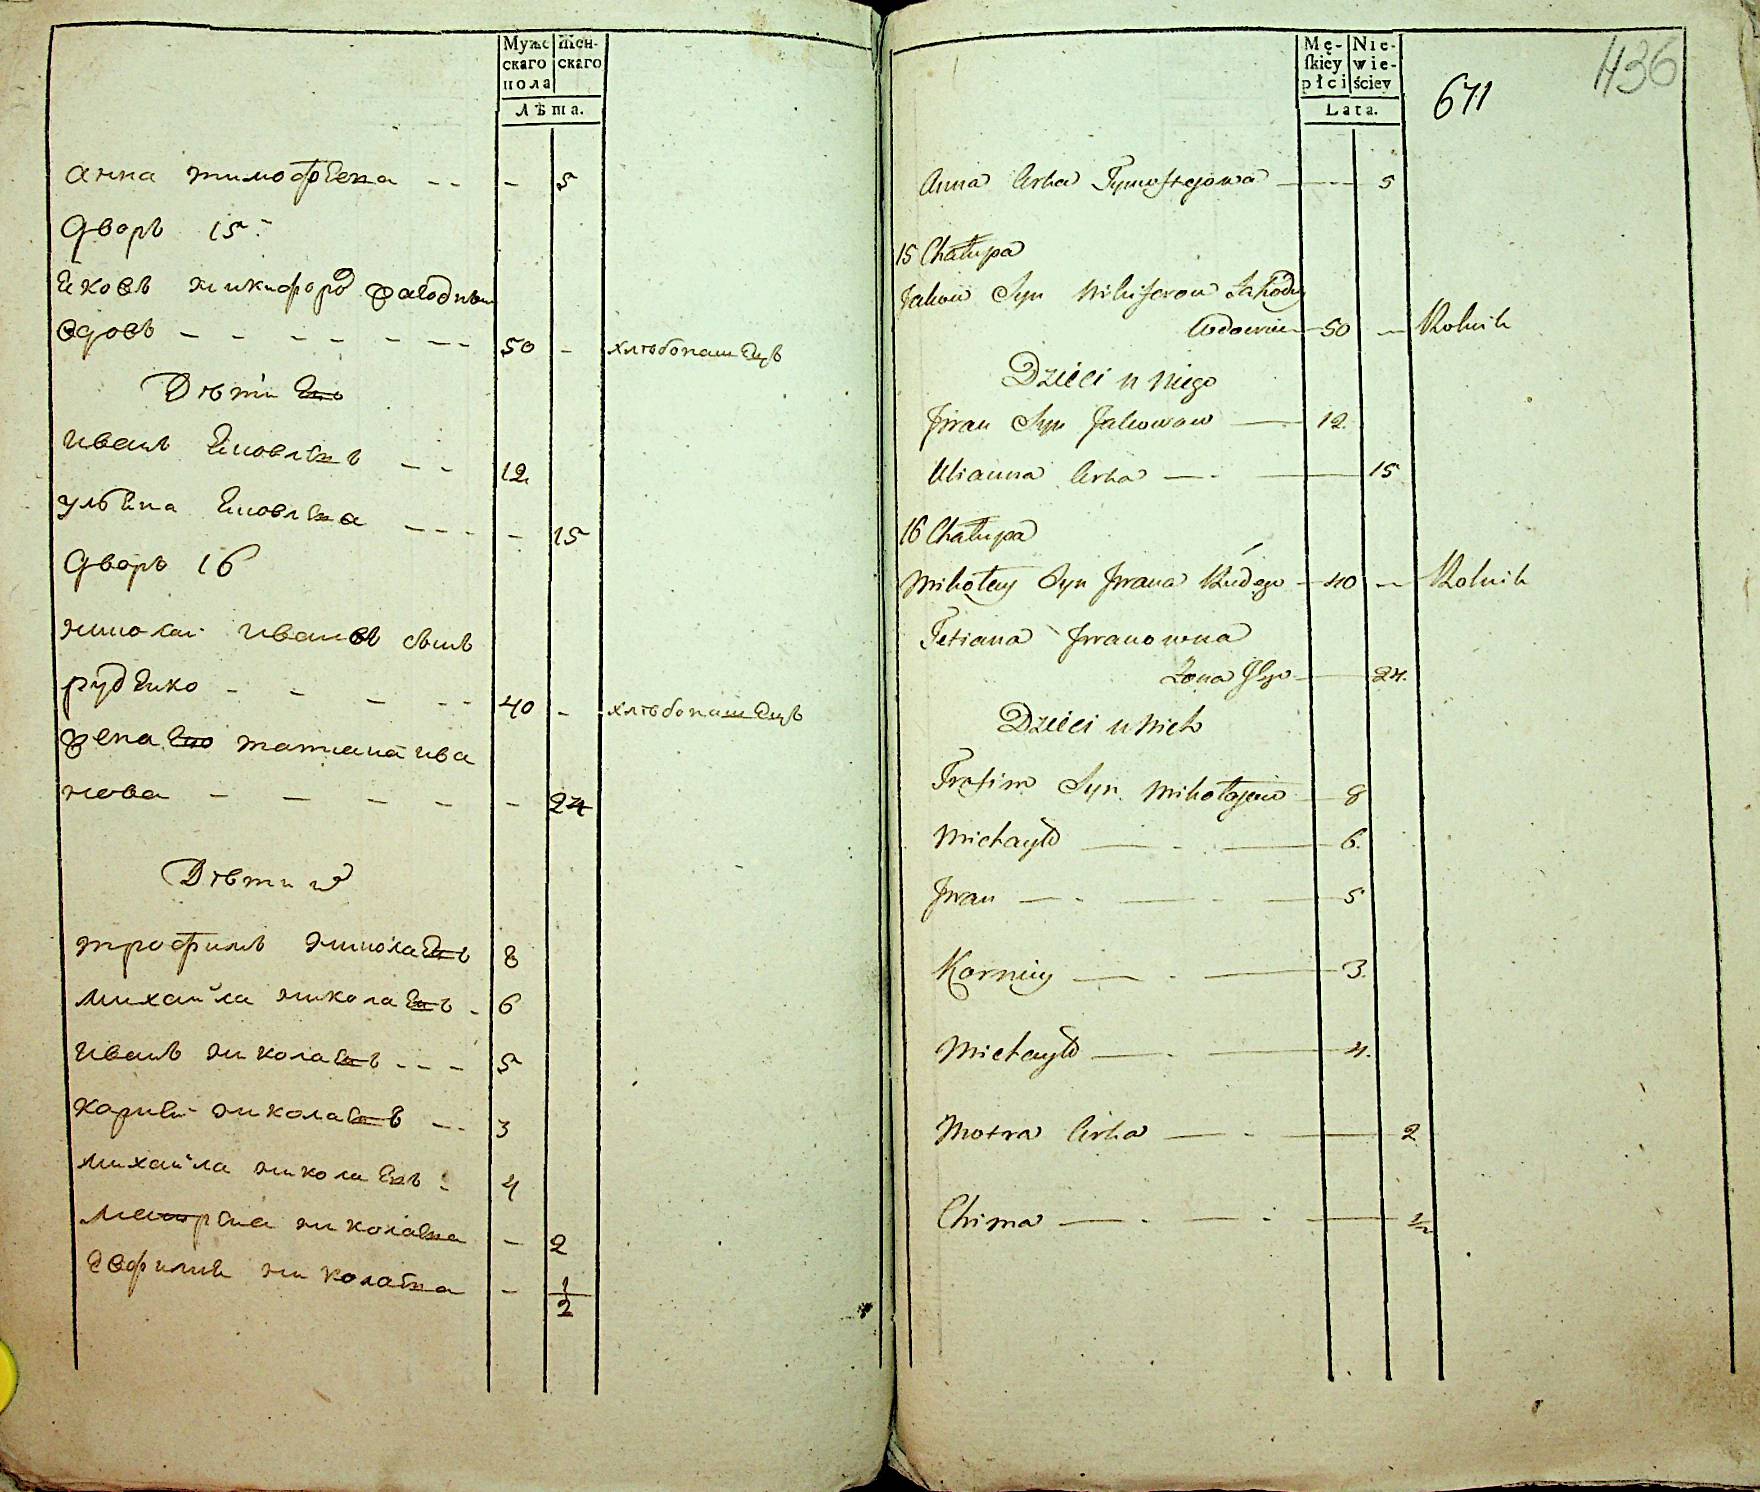 Мужс Жен-
скаго скаго
пола
Лѣта.
анна тимофѣева - - - 5
дворъ 15
Яковъ никифоровъ
вдовъ - - - - - - - 50 - хлѣбопашецъ
Дѣти его
иванъ Яковлевъ - - 12
ульяна Яковлева - - - - 15
дворъ 16
николаи ивановъ сынъ
руденко - - - - - 40 - хлѣбопашецъ
жена его татиана ива
нова - - - - - 24
Дѣти их
трофимъ николаевъ 8
михаила николаевъ - 6
иванъ николаевъ - - - 5
корнѣи николаевъ - - 3
михаила николаевъ - 4
матрена николаева - 2
евфимия николаева - 1/2
Mę- Nie-
ſkiey wie-
płci ściey
Lata.
671
436
Anna Corka Tymofiejowa — 5
15 Chałupa
Jakow Syn Nikiforow
Wdowiec — 50 — Rolnik
Dzieci u niego
Jwan Syn Jakowow — 12.
Ulianna Corka — - — 15
16 Chałupa
Mikołay Syn Jwana Rudego — 40 — Rolnik
Tetiana Jwanowna
Zona Jego — 24.
Dzieci u nich
Trofim Syn Mikołajew — 8
Michayło — - — 6.
Jwan — - — - — 5
Korniey — - — 3.
Michayło — - — 4.
Motra Corka — - — 2
Chima — - — - — 1/2